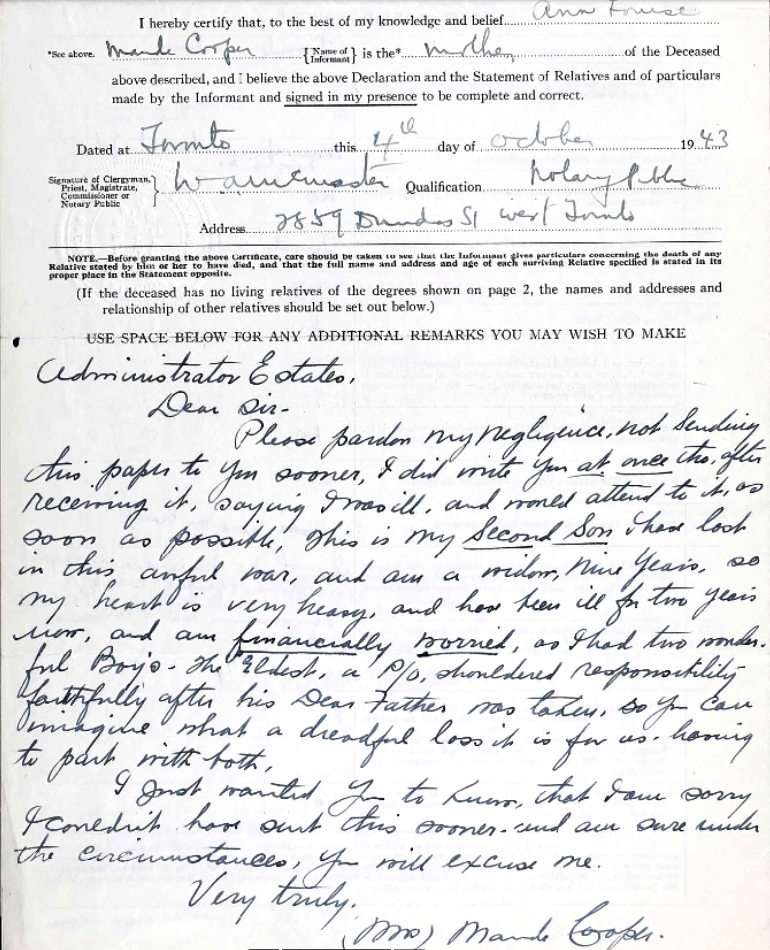 I hereby certify that, to the best of my knowledge and belief Ann Louise
*See above. Maude Cooper {Name of Informant} is the* mother of the Deceased
above described, and I believe the above Declaration and the Statement of Relatives and of particulars
made by the Informant and signed in my presence to be complete and correct.
Dated at Toronto this 4th day of October 1943
Signature of Clergyman, Priest, Magistrate, Commissioner or Notary Public } Qualification Notary Public
Address 2859 Dundas St West Toronto
NOTE.—Before granting the above Certificate, care should be taken to see that the Informant gives particulars concerning the death of any
Relative stated by him or her to have died, and that the full name and address and age of each surviving Relative specified is stated in its
proper place in the Statement opposite.
(If the deceased has no living relatives of the degrees shown on page 2, the names and addresses and
relationship of other relatives should be set out below.)
USE SPACE BELOW FOR ANY ADDITIONAL REMARKS YOU MAY WISH TO MAKE
Administrator Estates,
Dear Sir-
Please pardon my negligence, not sending
this paper to you sooner, I did write you at once tho, after
receiving it, saying I was ill, and would attend to it, as
soon as possible, This is my Second Son I have lost
in this awful war, and am a widow, Nine Years, so
my heart is very heavy, and have been ill for two years
now, and am financially worried, as I had two wonder-
ful Boys- The Eldest, a P/O, shouldered responsibility
faithfully after his Dear Father was taken, so you can
imagine what a dreadful loss it is for us- having
to part with both,
I Just wanted you to know, that I am sorry
I couldn't have sent this sooner- and am sure under
the circumstances, you will excuse me.
Very truly.
(Mrs) Maude Cooper.